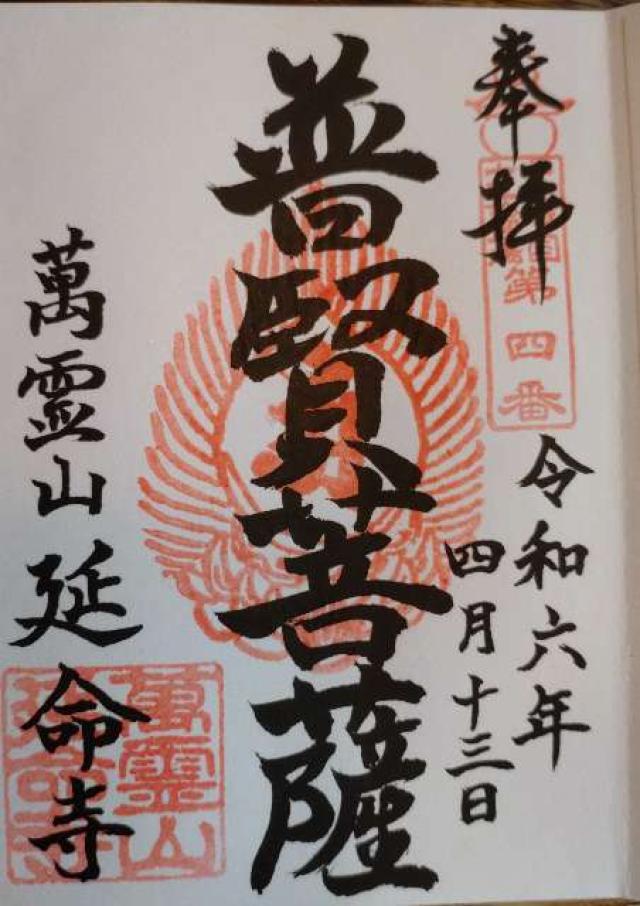 奉拝
第四番
令和六年
四月十三日
普賢菩薩
萬霊山延命寺
萬霊山